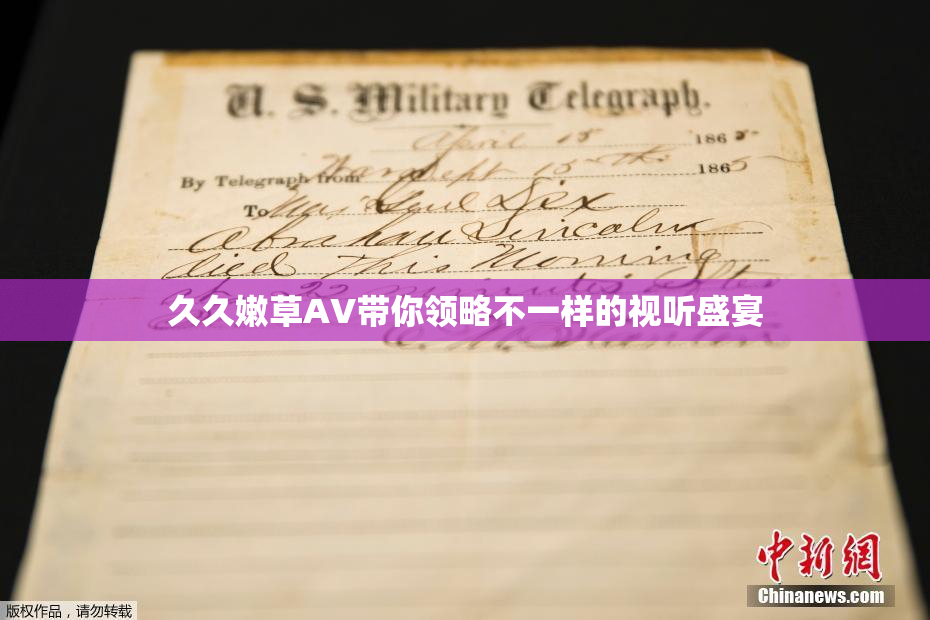 U. S. Military Telegraph.
April 15 1865
By Telegraph from War Dept 15th 1865
To Maj Genl Dix
Abraham Lincoln
died This Morning
22 minutes after
久久嫩草AV带你领略不一样的视听盛宴
E. M. Stanton
中新网
Chinanews.com
版权作品，请勿转载